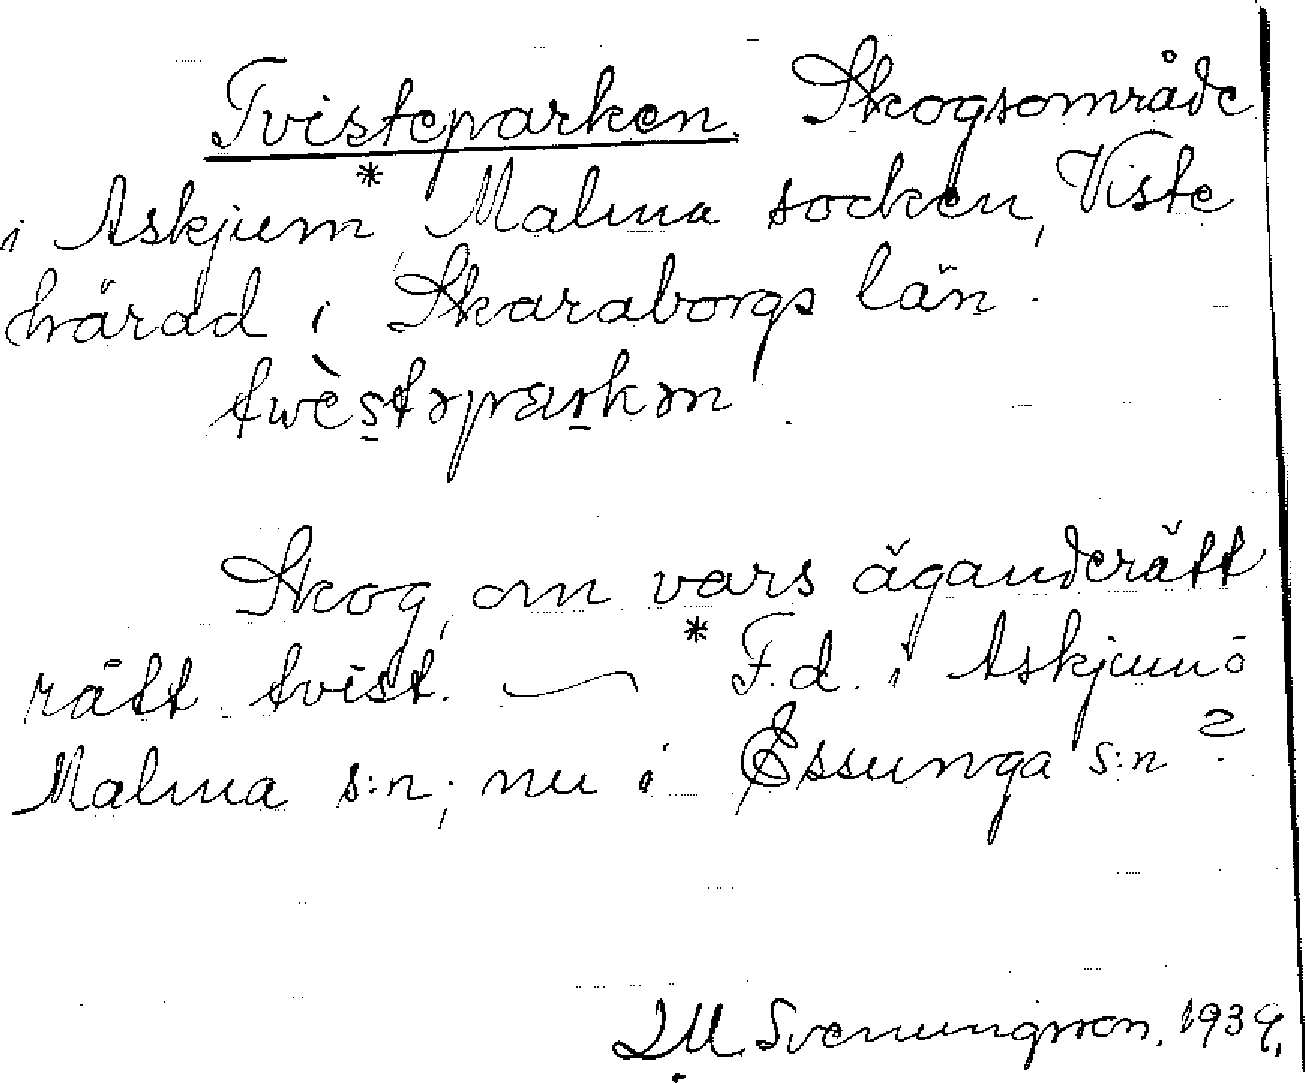 Tvisteparken. Skogsområde
i Askjum*, Malma socken, Viste
härad i Skaraborgs län.
twèstəparkən.
Skog, om vars äganderätt
rått tvist. — * F.d. i Askjum ö
Malma s:n; nu i Essunga s:n?
Svenungsson. 1939.